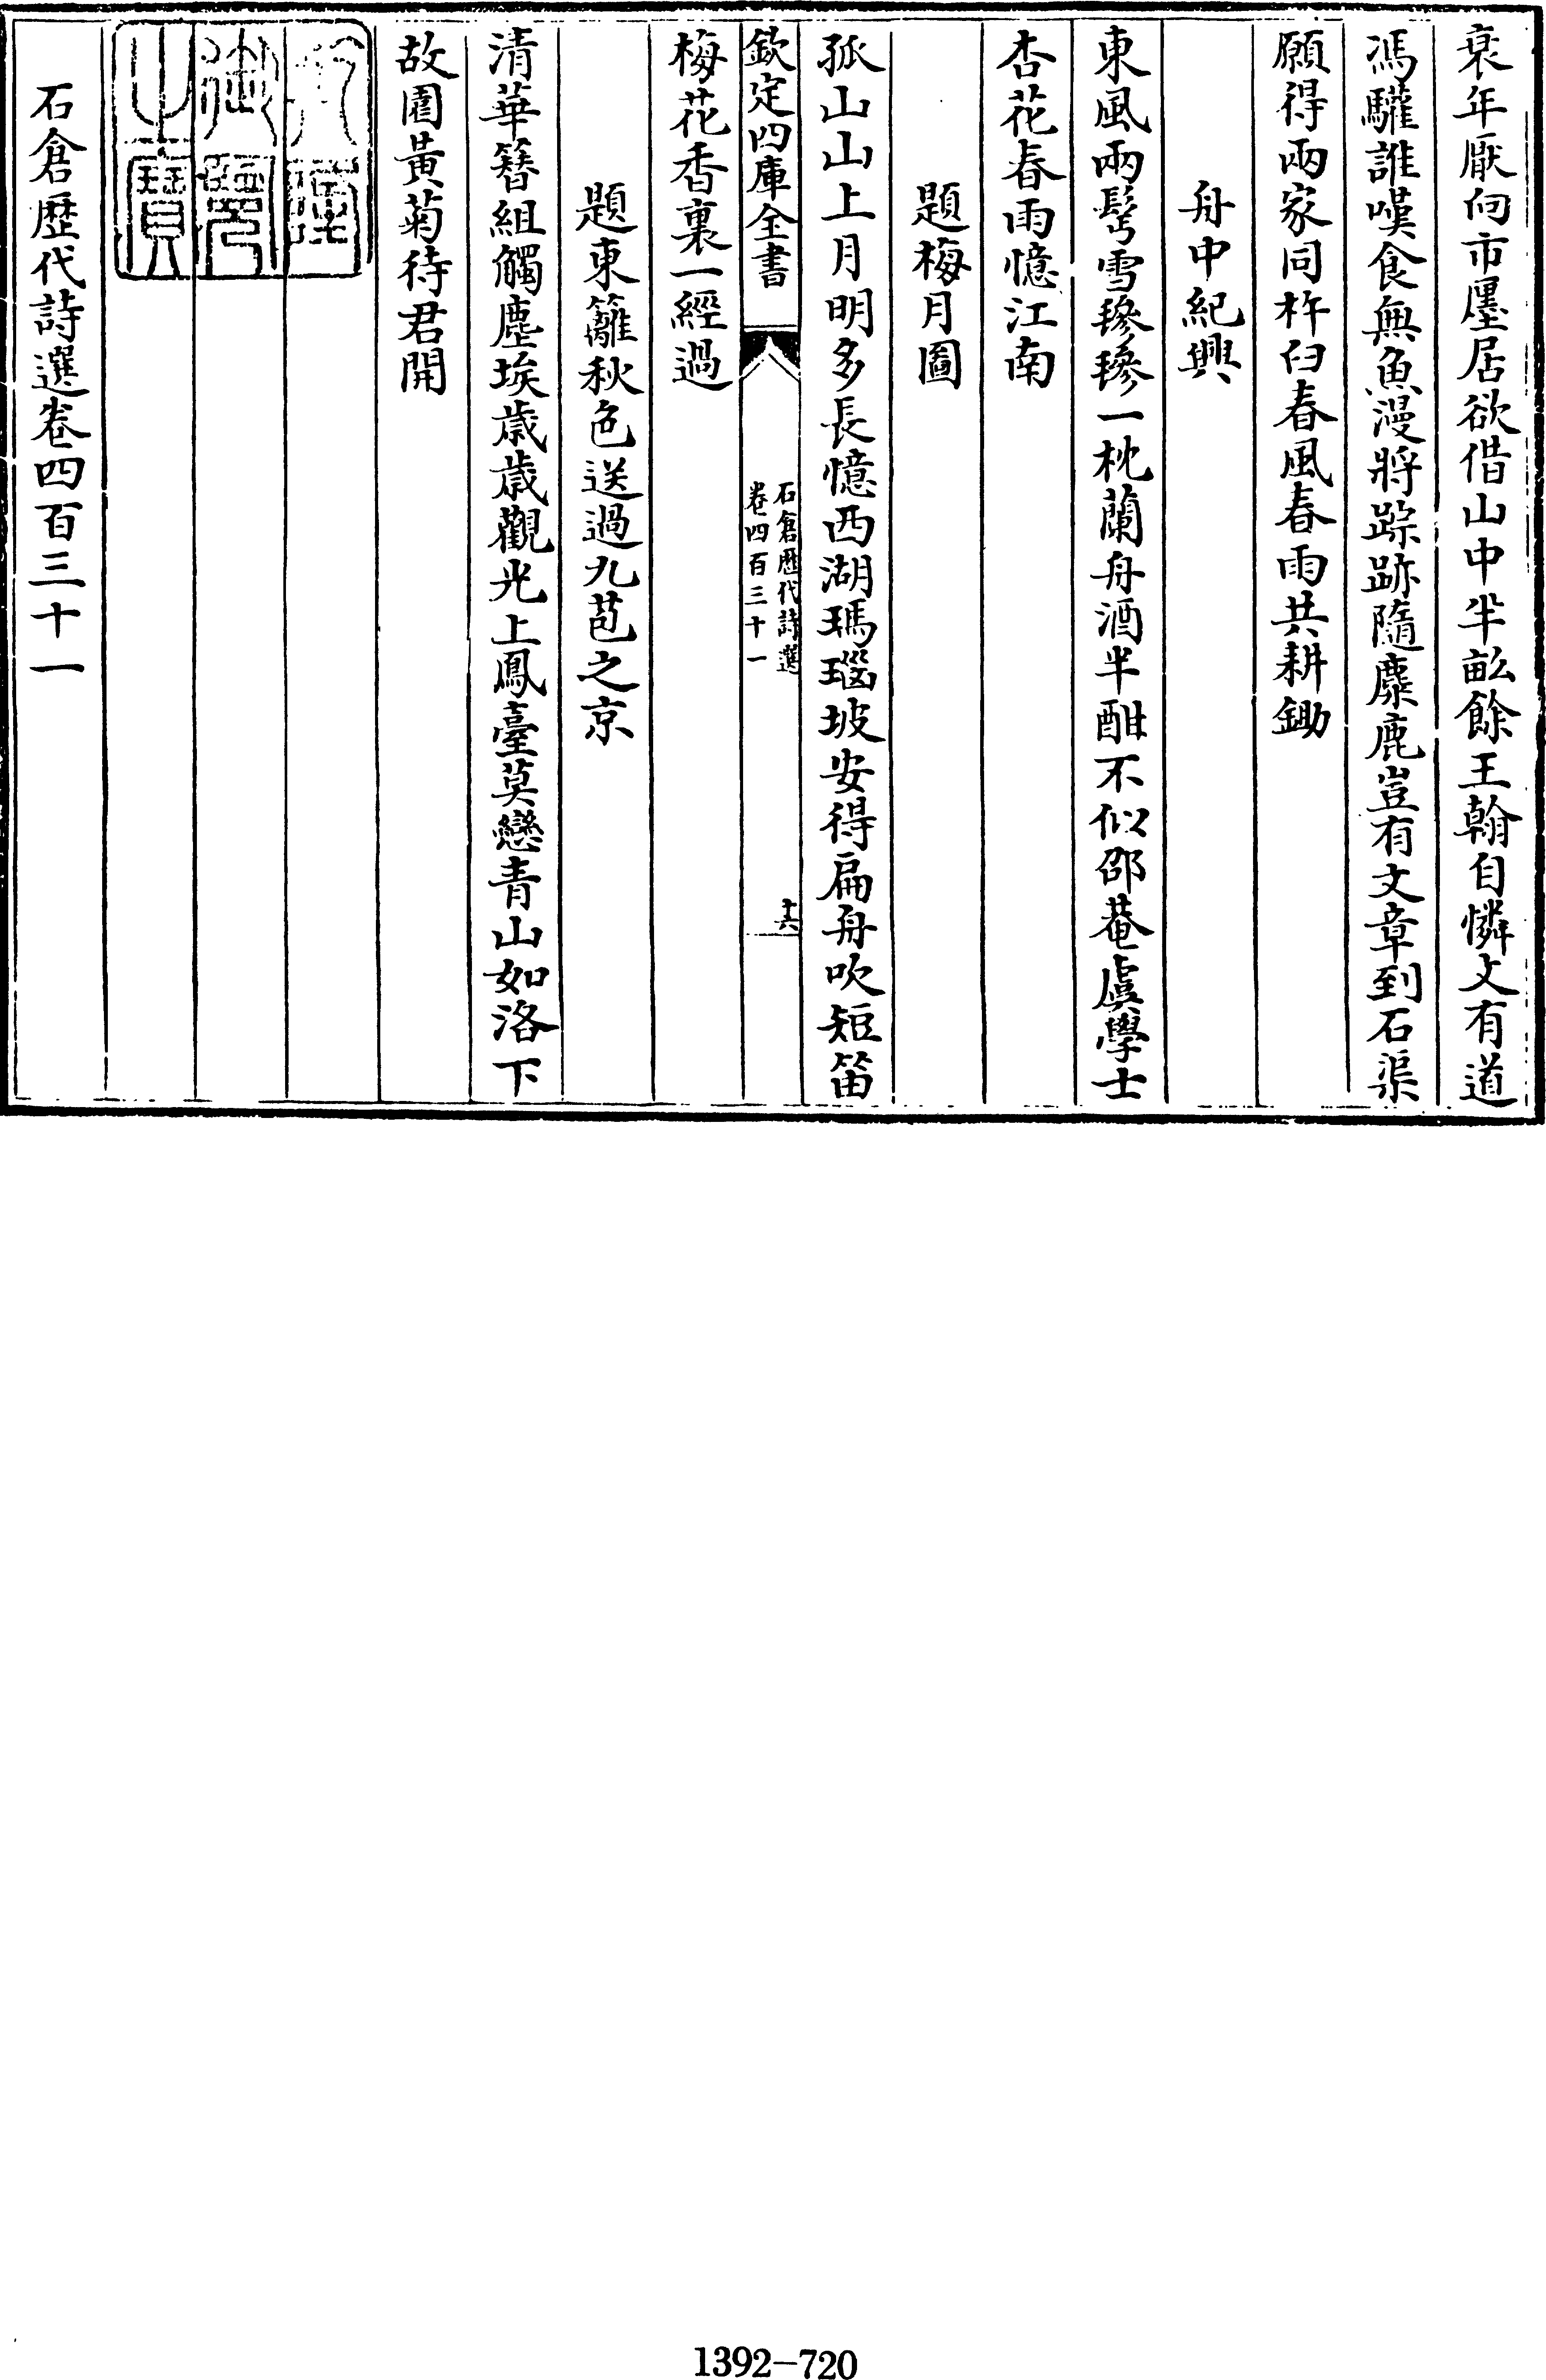 衰年厭向市廛居欲借山中半畝餘王翰自憐文有道
馮驩誰嘆食無魚漫將踪跡隨麋鹿豈有文章到石渠
願得兩家同杵臼春風春雨共耕鋤
舟中紀興
東風兩髩雪毿毿一枕蘭舟酒半酣不似邵菴虞學士
杏花春雨憶江南
題梅月圖
孤山山上月明多長憶西湖瑪瑙坡安得扁舟吹短笛
欽定四庫全書
石倉歴代詩選
卷四百三十一
十六
梅花香裏一經過
題東籬秋色送過九苞之京
清華簮組觸塵埃歳歳觀光上鳳臺莫戀青山如洛下
故園黃菊待君開
石倉歴代詩選卷四百三十一
1392-720